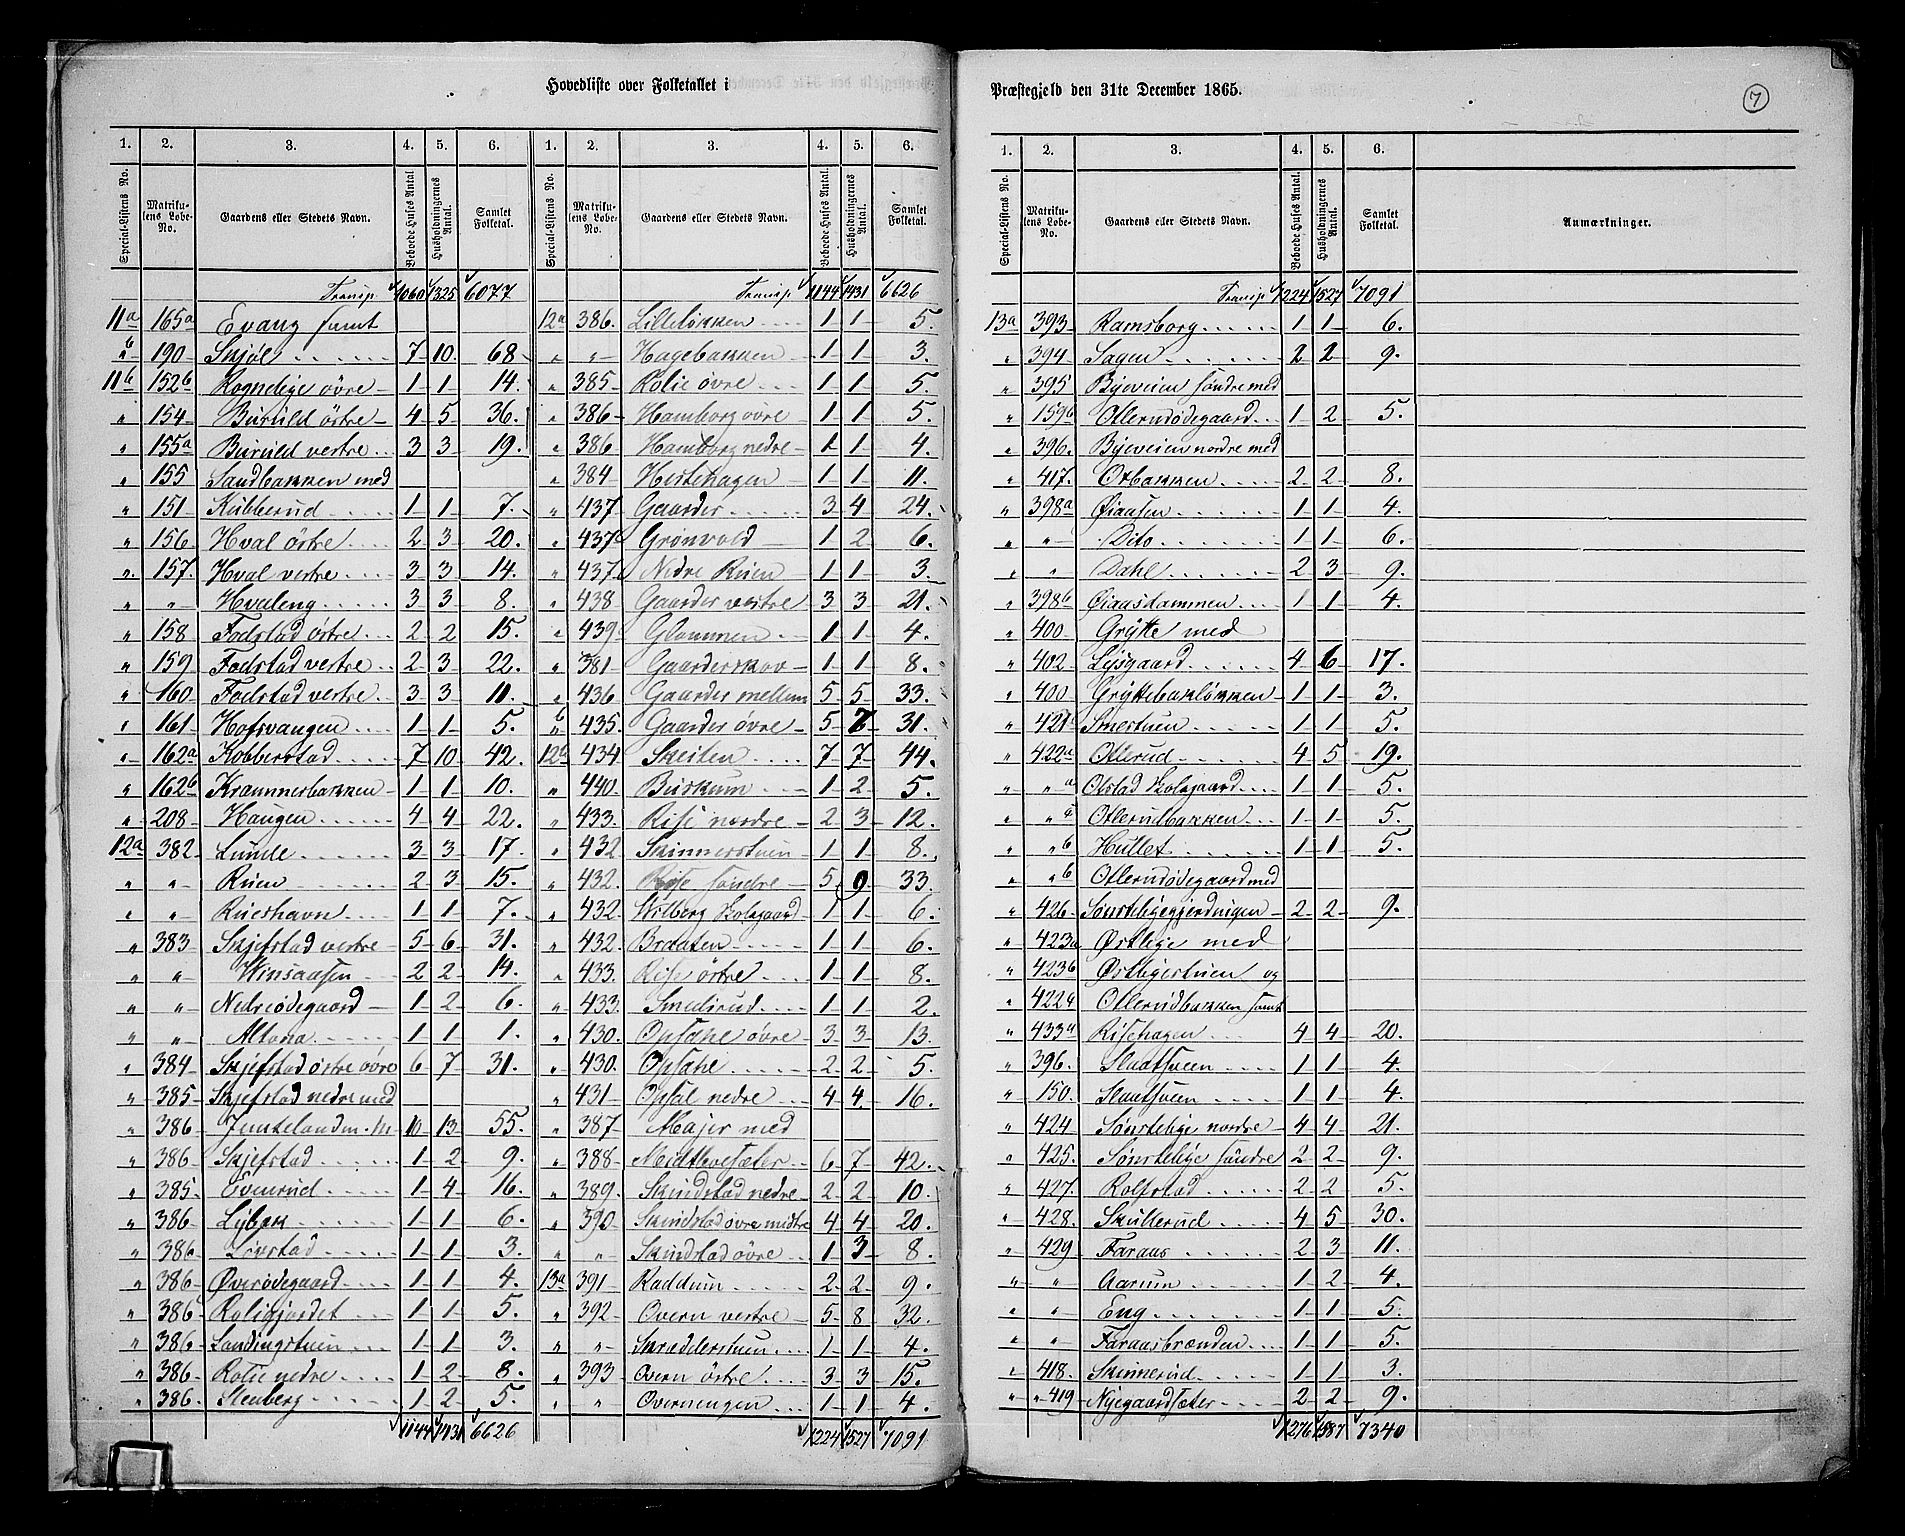 Hovedliste over Folketallet i
1. 2. 3. 4. 5. 6. 1. 2. 3. 4. 5. 6.
Special-Listens No. Matrikulens Løbe-No. Gaardens eller Stedets Navn. Beboede Huses Antal Husholdningernes Antal. Samlet Folketal. Special-Listens No. Matrikulens Løbe-No. Gaardens eller Stedets Navn. Beboede Huses Antal. Husholdningernes Antal. Samlet Folketal.
Transp. 1060 1325 6077
11a 165a Evang samt
" 190 Skjøl 7 10 68
11b 152b Rognelige övre 1 1 14.
" 154 Buruld östre 4 5 36.
" 155a Buruld vestre 3 3 19.
" 155 Sandbakken med
" 151 Kubberud 1 1 7.
" 156 Hval östre 2 3 20.
" 157. Hval vestre 3 3 14.
" " Hvaleng 3 3 8.
" 158 Fodstad östre 2 2 15.
" 159 Fodstad vestre 2 3 22.
" 160 Fodstad vestre 3 3 11.
" 161 Hofsvangen 1 1 5.
" 162a Kobberstad 7 10 42.
" 162b Krammerbakken 1 1 10.
" 208 Haugen 4 4 22.
12a 382 Lunde 3 3 17.
" " Ruen 2 3 15.
" " Rueshavn 1 1 7.
" 383 Skjefstad vestre 5 6 31.
" " Winsaasen 2 2 14.
" " Nedreödegaard 1 2 6.
" " Altona 1 1 1.
" 384 Skjefstad östre övre 6 7 31.
" 385 Skjefstad nedre med
" 386 10 13 55.
" 386 Skjefstad 1 2 9.
" 385 Evenrud 1 4 16.
" 386 Lybæk 1 1 6.
" 386 Lövstad 1 1 3.
" 386 Överödegaard 1 1 4.
" 386 Roligjordet 1 1 5.
" 386 Sandingstuen 1 1 3.
" 386 Rolie nedre 1 2 8.
" 386 Stenberg 1 2 5.
1144 1431 6626
Transp. 1144 1431 6626
12a 386. Lilleløkken 1 1 5.
" " Hagebakken 1 1 3.
" 385 Rolie övre 1 1 5.
" 386 Hamborg övre 1 1 5.
" 386 Hamborg nedre 1 1 4.
" 384 Hestehagen 1 1 11.
" 437 Gaarder 3 4 24.
" 437 Grönvold 1 2 6.
" 437 Nedre Ruen 1 1 3.
" 438 Gaarder vestre 3 3 21.
" 439 Glommen 1 1 4.
" 381 Gaarderskov 1 1 8.
" 436 Gaarder mellem 5 5 33.
" 435 Gaarder övre 5 7 31.
12b 434 Skesten 7 7 44.
" 440. Buskum 1 2 5.
" 433. Rise nordre 2 3 12.
" 432 Skinnerstuen 1 1 8.
" 432. Rise söndre 5 9 33.
" 432 Wilberg Skolegaard 1 1 6.
" 432. Braaten 1 1 6.
" 433. Rise östre 1 1 8.
" 433. Smedsrud 1 1 2.
" 430. Opsahl övre 3 3 13.
" 430. Opsahl 2 2 5.
" 431 Opsal nedre 4 4 16.
" 387 Majer med
" 388 Midtlovesæter 6 7 42.
" 389. Skindstad nedre 2 2 10.
" 390 Skindstad övre midtre 4 4 20.
" " Skindstad övre 1 3 8.
13a 391 Raddum 2 2 9.
" 392 Overn vestre 5 8 32.
" " Skrædderstuen 1 1 4.
" 393 Overn östre 3 3 15.
" " Overnengen 1 1 4.
1224 1527 7091
Præstegjeld den 31te December 1865.
7
1. 2. 3. 4. 5. 6.
Special-Listens No. Matrikulens Løbe-No. Gaardens eller Stedets Navn. Beboede Huses Antal. Husholdningernes Antal. Samlet Folketal. Anmærkninger.
Transp. 1224 1527 7091
13a 393 Ramsborg 1 1 6.
" 394 Sagen 2 2 9.
" 395 Byeveien söndre med
" 159b Otlerudödegaard 1 2 5.
" 396. Byeveien nordre med
" 417. Otbakken 2 2 8.
" 398a Øiaasen 1 1 4.
" " Dito 1 1 6.
" " Dahl 2 3 9.
" 398b Øiaasdammen 1 1 4.
" 400 Grytte med
" 402 Lysgaard 4 6 17.
" 400 Gryttebakløkken 1 1 3.
" 421 Smestuen 1 1 5.
" 422a Otlerud 4 5 19.
" " a Olstad Skolegaard 1 1 5.
" " a Otlerudbakken 1 1 5.
" " b Hullet 1 1 5.
" " b Otlerudödegaard med
" 426 Sönsteligegjerdningen 2 2 9.
" 423a Östlige med
" 423b Östligestuen og
" 422a Otlerudbakken samt
" 433a Risehagen 4 4 20.
" 396. Slaatsveen 1 1 4.
" 150. Slaatsveen 1 1 4.
" 424 Sönstelige nordre 4 4 21.
" 425. Sönstelige söndre 2 2 9.
" 427. Rolfstad 2 2 5.
" 428. Skullerud 4 5 30.
" 429 Faraas 2 3 11.
" " Aarum 1 2 4.
" " Eng 1 1 5.
" " Faraasbrænden 1 1 5.
" 418. Skinnerud 1 1 3.
" 419 Nyegaardsæter 2 2 9.
1276 1587 7340